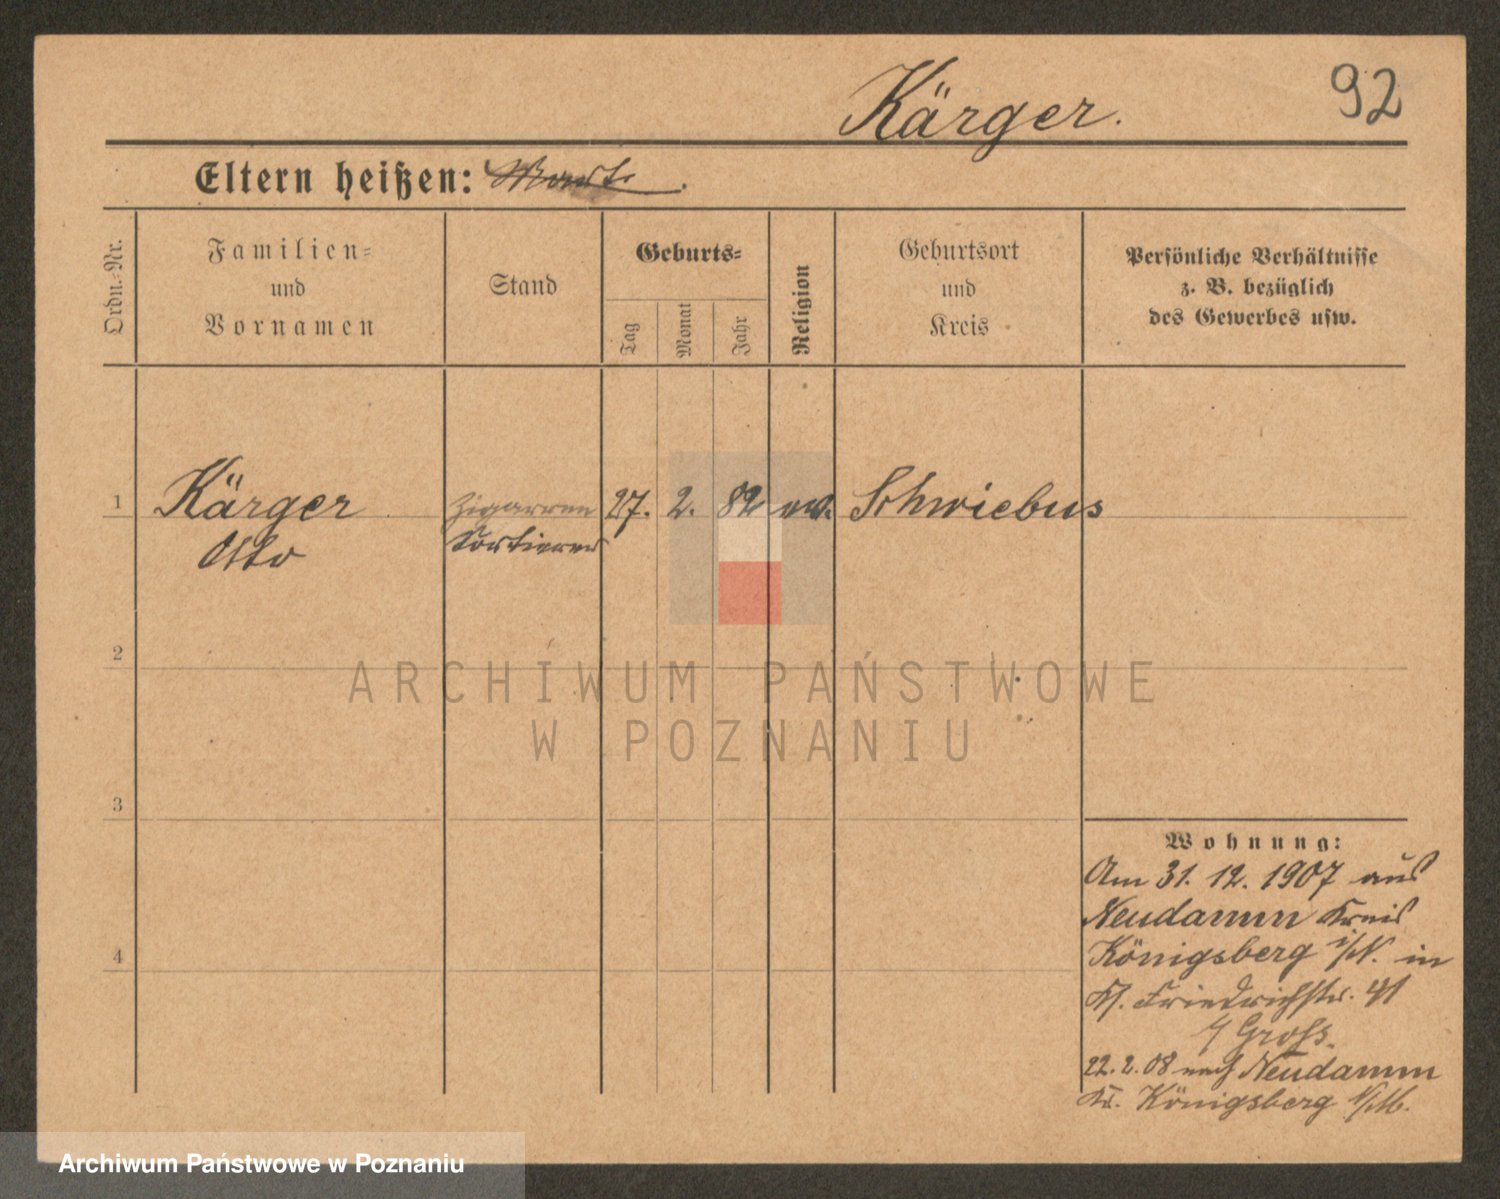 Kärger.
92
Eltern heißen:
Ordn.-Nr.
Familien-
und
Vornamen
Stand
Geburts-
Tag
Monat
Jahr
Religion
Geburtsort
und
Kreis
Persönliche Verhältnisse
z. B. bezüglich
des Gewerbes usw.
1
Kärger
Otto
Zigarren
Sortierer
27.
2.
82
ev.
Schwiebus
2
3
4
Wohnung:
Am 31. 12. 1907 aus
Neudamm Kreis
Königsberg i/N. in
Friedrichstr. 41
Gross.
22. 2. 08 nach Neudamm
Kr. Königsberg N/M.
ARCHIWUM PAŃSTWOWE
W POZNANIU
Archiwum Państwowe w Poznaniu